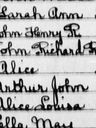 Sarah Ann
John Henry R
John Richard
Alice
Arthur John
Alice Louisa
May